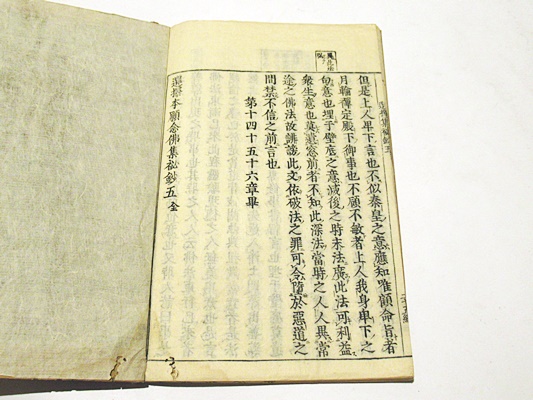 但是上人卑下言也不似秦皇之意應知唯願命旨者
月輪禪定殿下御事也不顧不敏者上人我身卑下之
句意也埋于壁底之意滅後之時末法廣此法可利益
衆生意也莫遺窓前者不知此深法當時之人人異常
途之佛法故誹謗此文依破法之罪可令墮於惡道之
間禁不信之前言也
第十四十五十六章畢
選擇本願念佛集秘鈔五 全